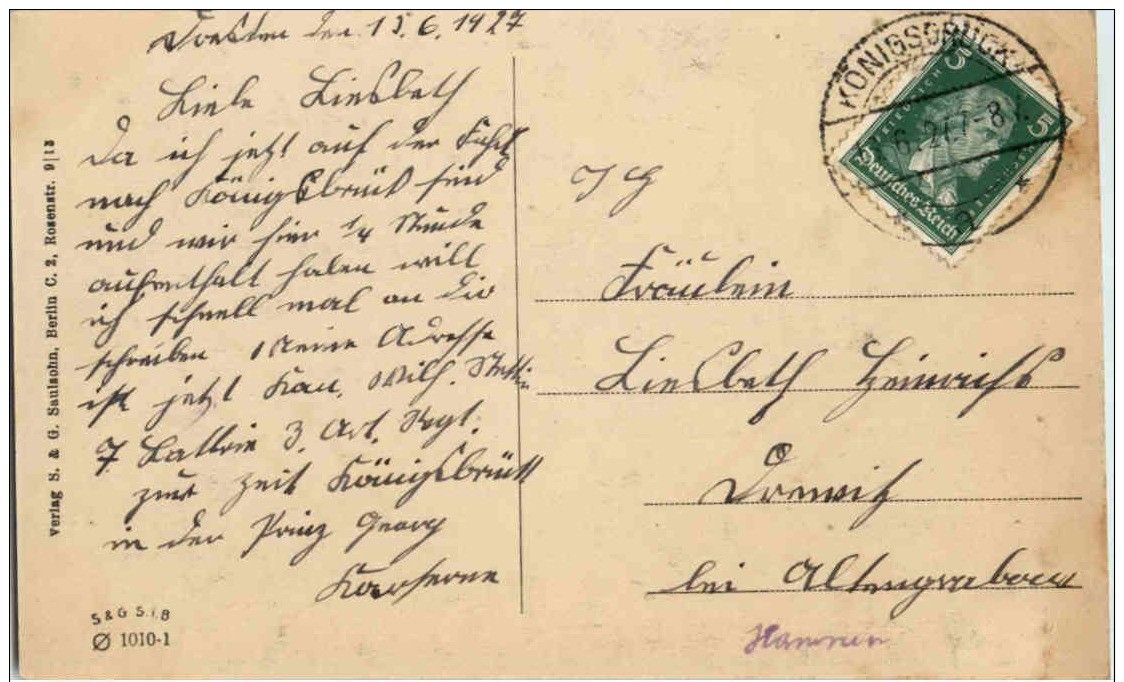 Dresden den 15.6.1927
Liebe Liesbeth
Da ich jetzt auf der Fahrt
nach Königsbrück sind
und wir hier 1/4 Stunde
aufenthalt haben will
ich schnell mal an dir
schreiben Meine Adresse
ist jetzt Kan. Wilh. Stettin
7 Battrie 3. Art. Regt.
zur zeit Königsbrück
in der Prinz Georg
Kaserne
verlag S. & G. Saulsohn, Berlin C. 2, Rosenstr. 9|13
S & G S. i. B
1010-1
KÖNIGSBRÜCK
6.27.7-8
5
5
Deutsches Reich
Fräulein
Liesbeth Heinrichs
Drewitz
bei Altengrabow